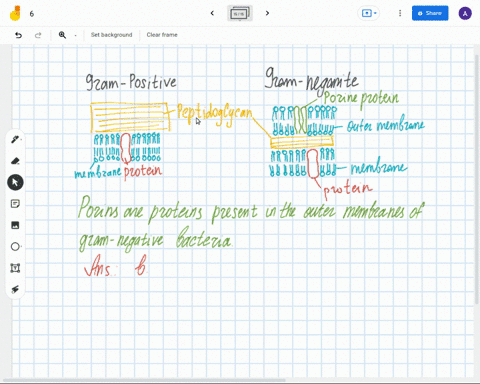 6
16 / 16
Share
A
Set background
Clear frame
Gram-Positive
Gram-negative
Porine protein
Peptidoglycan
outer membrane
membrane
protein
membrane
protein
Porins are proteins present in the outer membranes of
gram-negative bacteria
Ans: b